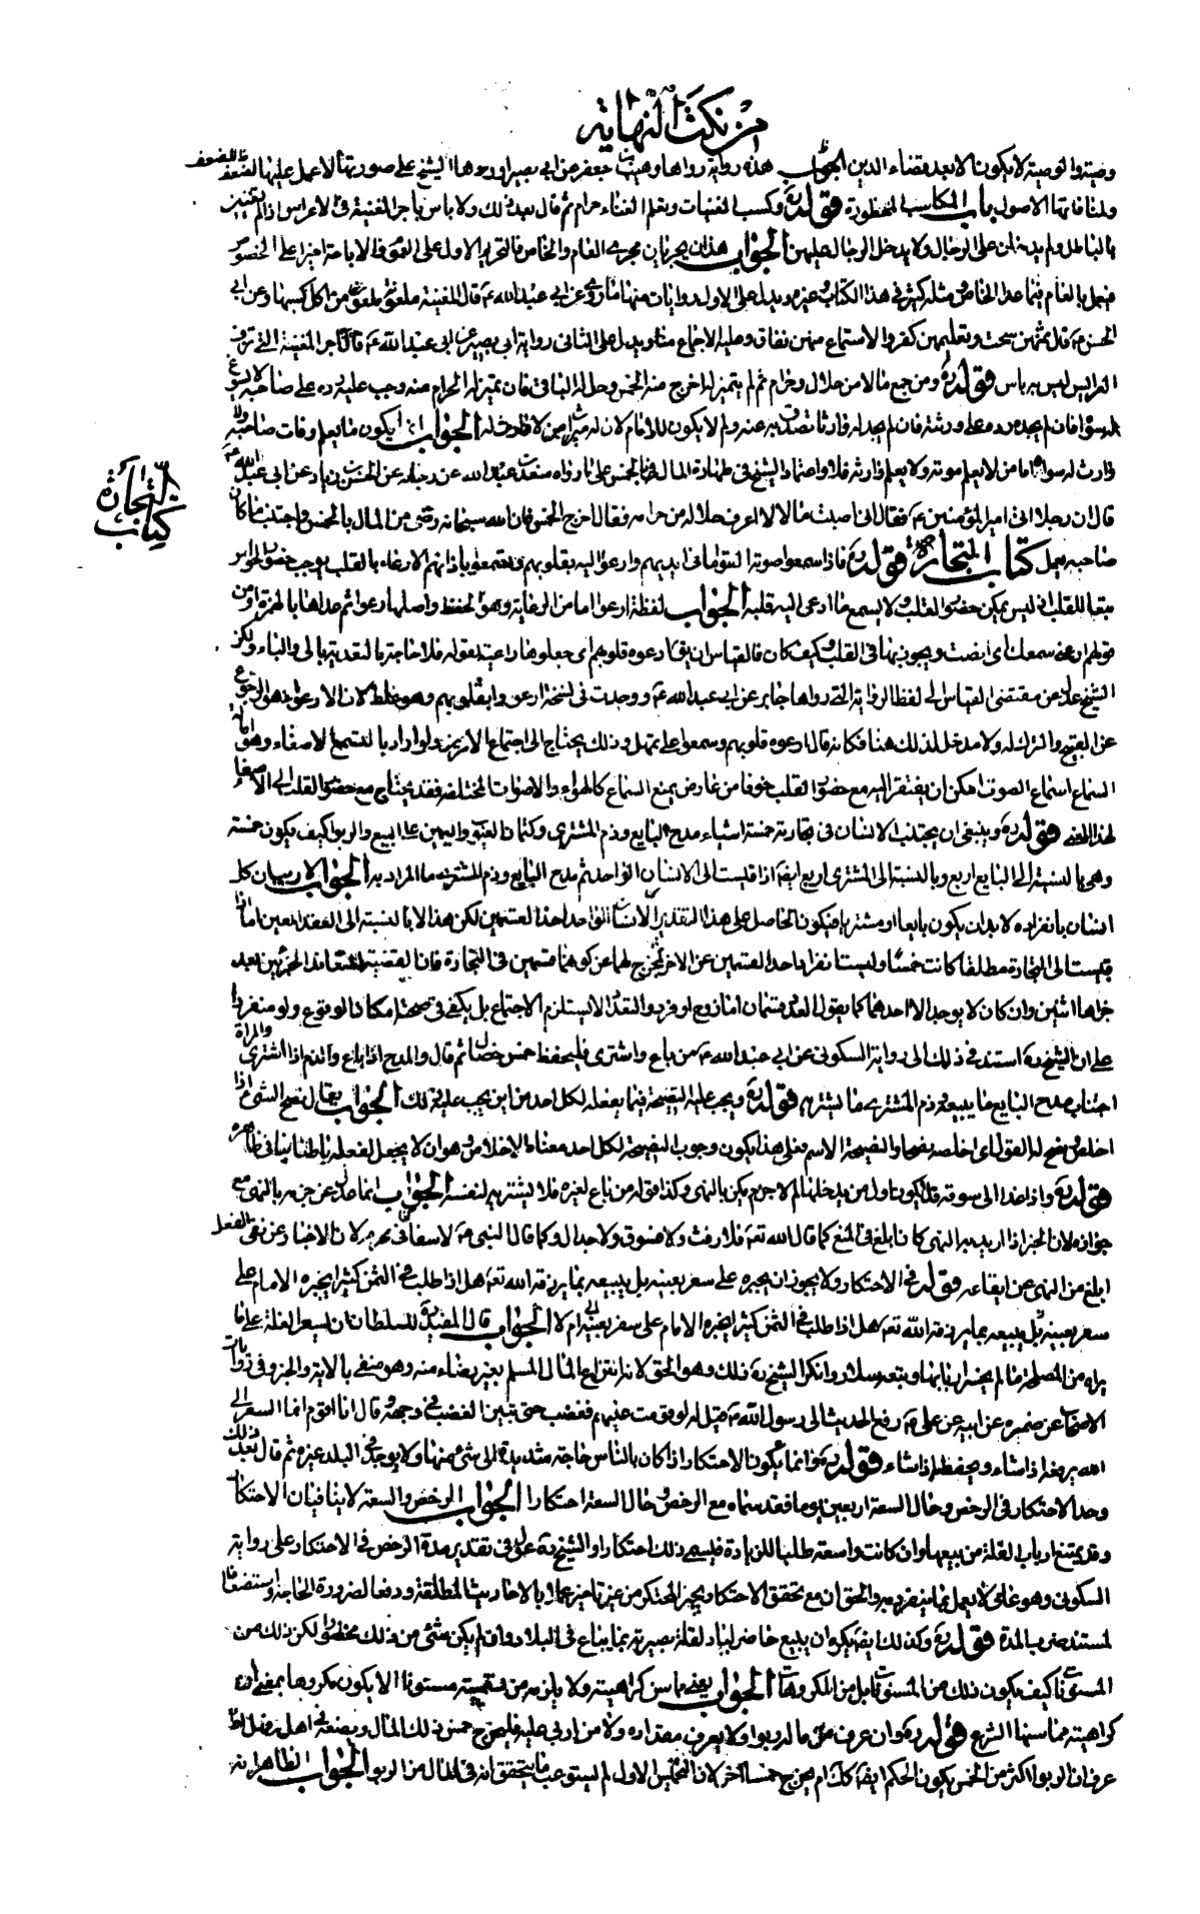 من نكت النهاية
وصيته والوصية لا يكون الا بعد قضاء الدين الجواب هذه رواية رواها وهيب جعفر عن ابي بصير اوردها الشيخ على صورتها لا عمل عليها لضعف
ولمنافاتها الاصول باب المكاسب المحظورة قوله ره وكسب المغنيات وتعلم الغناء حرام ثم قال بعد ذلك ولا باس باجر المغنية في الاعراس اذا لم يغنين
بالباطل ولم يدخلن على الرجال ولا يدخل الرجال عليهن الجواب هذان يجريان مجرى العام والخاص فالتحريم الاول على العموم والاباحة اخيرا على الخصوص
فيعمل بالعام فيما عدا الخاص ومثله كثير في هذا الكتاب وغيره ويدل على الاول روايات منها ما روي عن ابي عبد الله ع قال المغنية ملعونة ملعون من اكل كسبها وعن ابي
الحسن ع قال ثمنهن سحت وتعليمهن كفر والاستماع منهن نفاق وعليه الاجماع منا ويدل على الثاني رواية ابي بصير عن ابي عبد الله ع قال اجر المغنية التي تزف
العرايس ليس به باس قوله ره ومن جمع مالا من حلال وحرام ثم لم يتميز له اخرج منه الخمس وحل له الباقي فان تميز له الحرام منه وجب عليه رده على صاحبه لا يسوغ
له سواه فان لم يجده رده على ورثته فان لم يجد له وارثا تصدق به عنه ولم لا يكون للامام لان له ميراث من لا وارث له الجواب انما يكون ما يعلم وفات صاحبه ولا
وارث له سواه اما من لا يعلم موته ولا يعلم وارثه فلا واعتماد الشيخ في طهارة المال بالخمس على ما رواه سعد بن عبد الله عن رجاله عن الحسن بن زياد عن ابي عبد الله ع
قال ان رجلا اتى امير المؤمنين ع فقال اني اصبت مالا لا اعرف حلاله من حرامه فقال اخرج الخمس فان الله سبحانه رضي من المال بالخمس واجتنب ما كان
صاحبه يعمل كتاب المتجارة قوله ره فاذا سمعوا صوته القوا ما في ايديهم وارعوا اليه بقلوبهم وسمعوه باذانهم الارعاء بالقلب يوجب حضور الحواس
التجارة
كتاب
تبعا للقلب اذ ليس يمكن حضور القلب ولا يسمع ما ارعى اليه قلبه الجواب لفظة ارعوا اما من الرعاية وهو الحفظ واصلها رعوا ثم عداها بالهمزة او من
قولهم ارعني سمعك اي انصت ويجوز بهما في القلب وكيف كان فالقياس ان يقال ارعوه قلوبهم اي جعلوها راعية لقوله فلا حاجة بالتعدية بالى والباء ولكن
الشيخ عدل عن مقتضى القياس الى لفظ الرواية التي رواها جابر عن ابي عبد الله ع ووجدت في نسخة ارعووا بقلوبهم وهو غلط لان الارعواء هو الرجوع
عن القبيح والترك له ولا مدخل لذلك هنا فكانه قال ارعوه قلوبهم وسمعوا على تمهل وذلك يحتاج الى اجتماع الامرين ولو اراد بالتسمع الاصغاء وهو امالة
السماع استماع الصوت امكن ان يفتقر اليه مع حضور القلب خوفا من عارض يمنع السماع كالهواء والاصوات المختلفة فقد يحتاج مع حضور القلب الى الاصغاء
لهذا المعنى قوله ره وينبغي ان يجتنب الانسان في تجارته خمسة اشياء مدح البايع وذم المشتري وكتمان العيوب واليمين على البيع والربوا كيف يكون خمسة
وهي بالنسبة الى البايع اربع وبالنسبة الى المشتري اربع ايضا اذا قيست الى الانسان الواحد ثم مدح البايع وذم المشتري ما المراد به الجواب لا ريب ان كل
انسان بانفراده لا بد ان يكون بايعا او مشتريا فيكون الحاصل على هذا التقدير الانسان الواحد احد القسمين لكن هذا الا بالنسبة الى العقد المعين اما اذا
قيست الى التجارة مطلقا كانت خمسا وليست انفراد احد القسمين عن الاخر مخرج لهما عن كونهما قسمين في التجارة فان القضية الجزئين بعد
جزاها اثنين وان كان لا يوجد الا احدهما كما يقول العدد قسمان اما زوج او فرد والتعدد لا يستلزم الاجتماع بل يكفي في صحته امكان الوقوع ولو منفردا
على ان الشيخ ره استند في ذلك الى رواية السكوني عن ابي عبد الله ع من باع واشترى فليحفظ خمس خصال ثم قال والمدح اذا باع والذم اذا اشترى والمراد
اجتناب مدح البايع ما يبيعه وذم المشتري ما يشتريه قوله ره ويجب عليه النصيحة فيما يفعله لكل احد من اين يجب عليه ذلك الجواب يقال نصح الشيء اذا
اخلص ونصح له القول اي اخلصه نصحا والنصيحة الاسم فعلى هذا يكون وجوب النصيحة لكل احد معناه الاخلاص وهو ان لا يجعل لفعله باطنا ينافي ظاهره
قوله ره واذا غدا الى سوقه فلا يكون اول من يدخلها لم لا جزم يكن بالنهي وكذا قوله من باع لغيره فلا يشتريه لنفسه الجواب انما عدل عن جزمه بالنهي مع
جوازه لان الخبر اذا اريد به النهي كان ابلغ في المنع كما قال الله تعه فلا رفث ولا فسوق ولا جدال وكما قال النبي ص لا سفاح في محرم لان الاخبار عن نفي الفعل
ابلغ من النهي عن ايقاعه قوله في الاحتكار ولا يجوز ان يجبره على سعر بعينه بل يبيعه بما يرزقه الله تعه هل اذا طلب في الثمن كثيرا يجبره الامام على
سعر بعينه بل يبيعه بما يرزقه الله تعه هل اذا طلب في الثمن كثيرا يجبره الامام على سعر بعينه ام لا الجواب قال المفيد ره للسلطان ان يسعر الغلة على ما
يراه من المصلحة ما لم يخسر اربابها وتبعه سلار وانكر الشيخ ره ذلك وهو الحق لانه انتزاع المال المسلم بغير رضاء منه وهو منفي بالاية والخبر وفي روايات
الاصحاب عن ضمرة عن ابيه عن علي ع رفع الحديث الى رسول الله ص قيل له لو قومت عليهم فغضب حتى تبين الغضب في وجهه وقال انا اقوم انما السعر الى
الله يرفعه اذا شاء ويخفضه اذا شاء قوله ره وانما يكون الاحتكار اذا كان بالناس حاجة شديدة الى شيء منها ولا يوجد في البلد غيره ثم قال بعد ذلك
وحد الاحتكار في الرخص وحال السعة اربعين يوما فقد سماه مع الرخص وحال السعة احتكارا الجواب الرخص والسعة لا ينافيان الاحتكار
وقد يمتنع ارباب الغلة من بيعها وان كانت واسعة طلبا للزيادة فيسمى ذلك احتكارا والشيخ ره عول في تقدير مدة الرخص في الاحتكار على رواية
السكوني وهو عامي لا يعمل بما ينفرد به والحق ان مع تحقق الاحتكار يجبر المحتكر من غير تاخير عملا بالاحاديث المطلقة ودفعا لضرورة الحاجة واستضعافا
لمستند ضرب المدة قوله ره وكذلك ايضا يكره ان يبيع حاضر لباد لقلة بصيرته بما يباع في البلاد وان لم يكن شيء من ذلك محظورا لكن ذلك من
المسنونات كيف يكون ذلك من المسنونات قابل من المكروهات الجواب يعني ما سن كراهيته ولا يلزم من تسميته مسنونا الا يكون مكروها بمعنى ان
كراهيته مما سنها الشرع قوله ره وان عرف ان ماله ربوا ولا يعرف مقداره ولا من اربى عليه فليخرج خمس ذلك المال ويضعه في اهله فان
عرف ان الربوا اكثر من الخمس يكون الحكم ايضا كك ام يخرج خمسا اخر لان الخمس الاول لم يستوعب ما يتحقق انه في المال من الربوا الجواب الظاهر انه